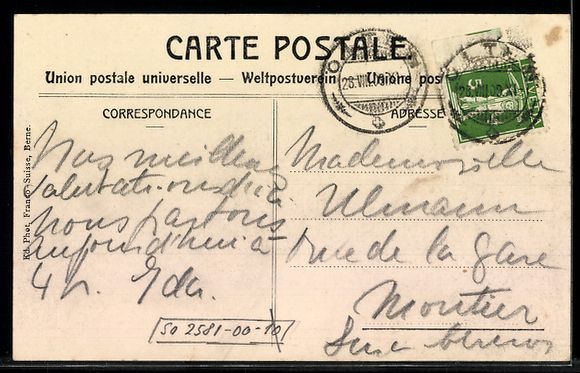 CARTE POSTALE
Union postale universelle — Weltpostverein — Unione pos
CORRESPONDANCE
ADRESSE
Nos meilleu
salutations d'ici
nous partons
aujourd'hui à
4 h. Ida.
Mademoiselle
Ulmann
rue de la Gare
Moutier
bernois
So 2581-00-10/
Ed. Phot. Franco-Suisse, Berne.
26.VIII.09
5